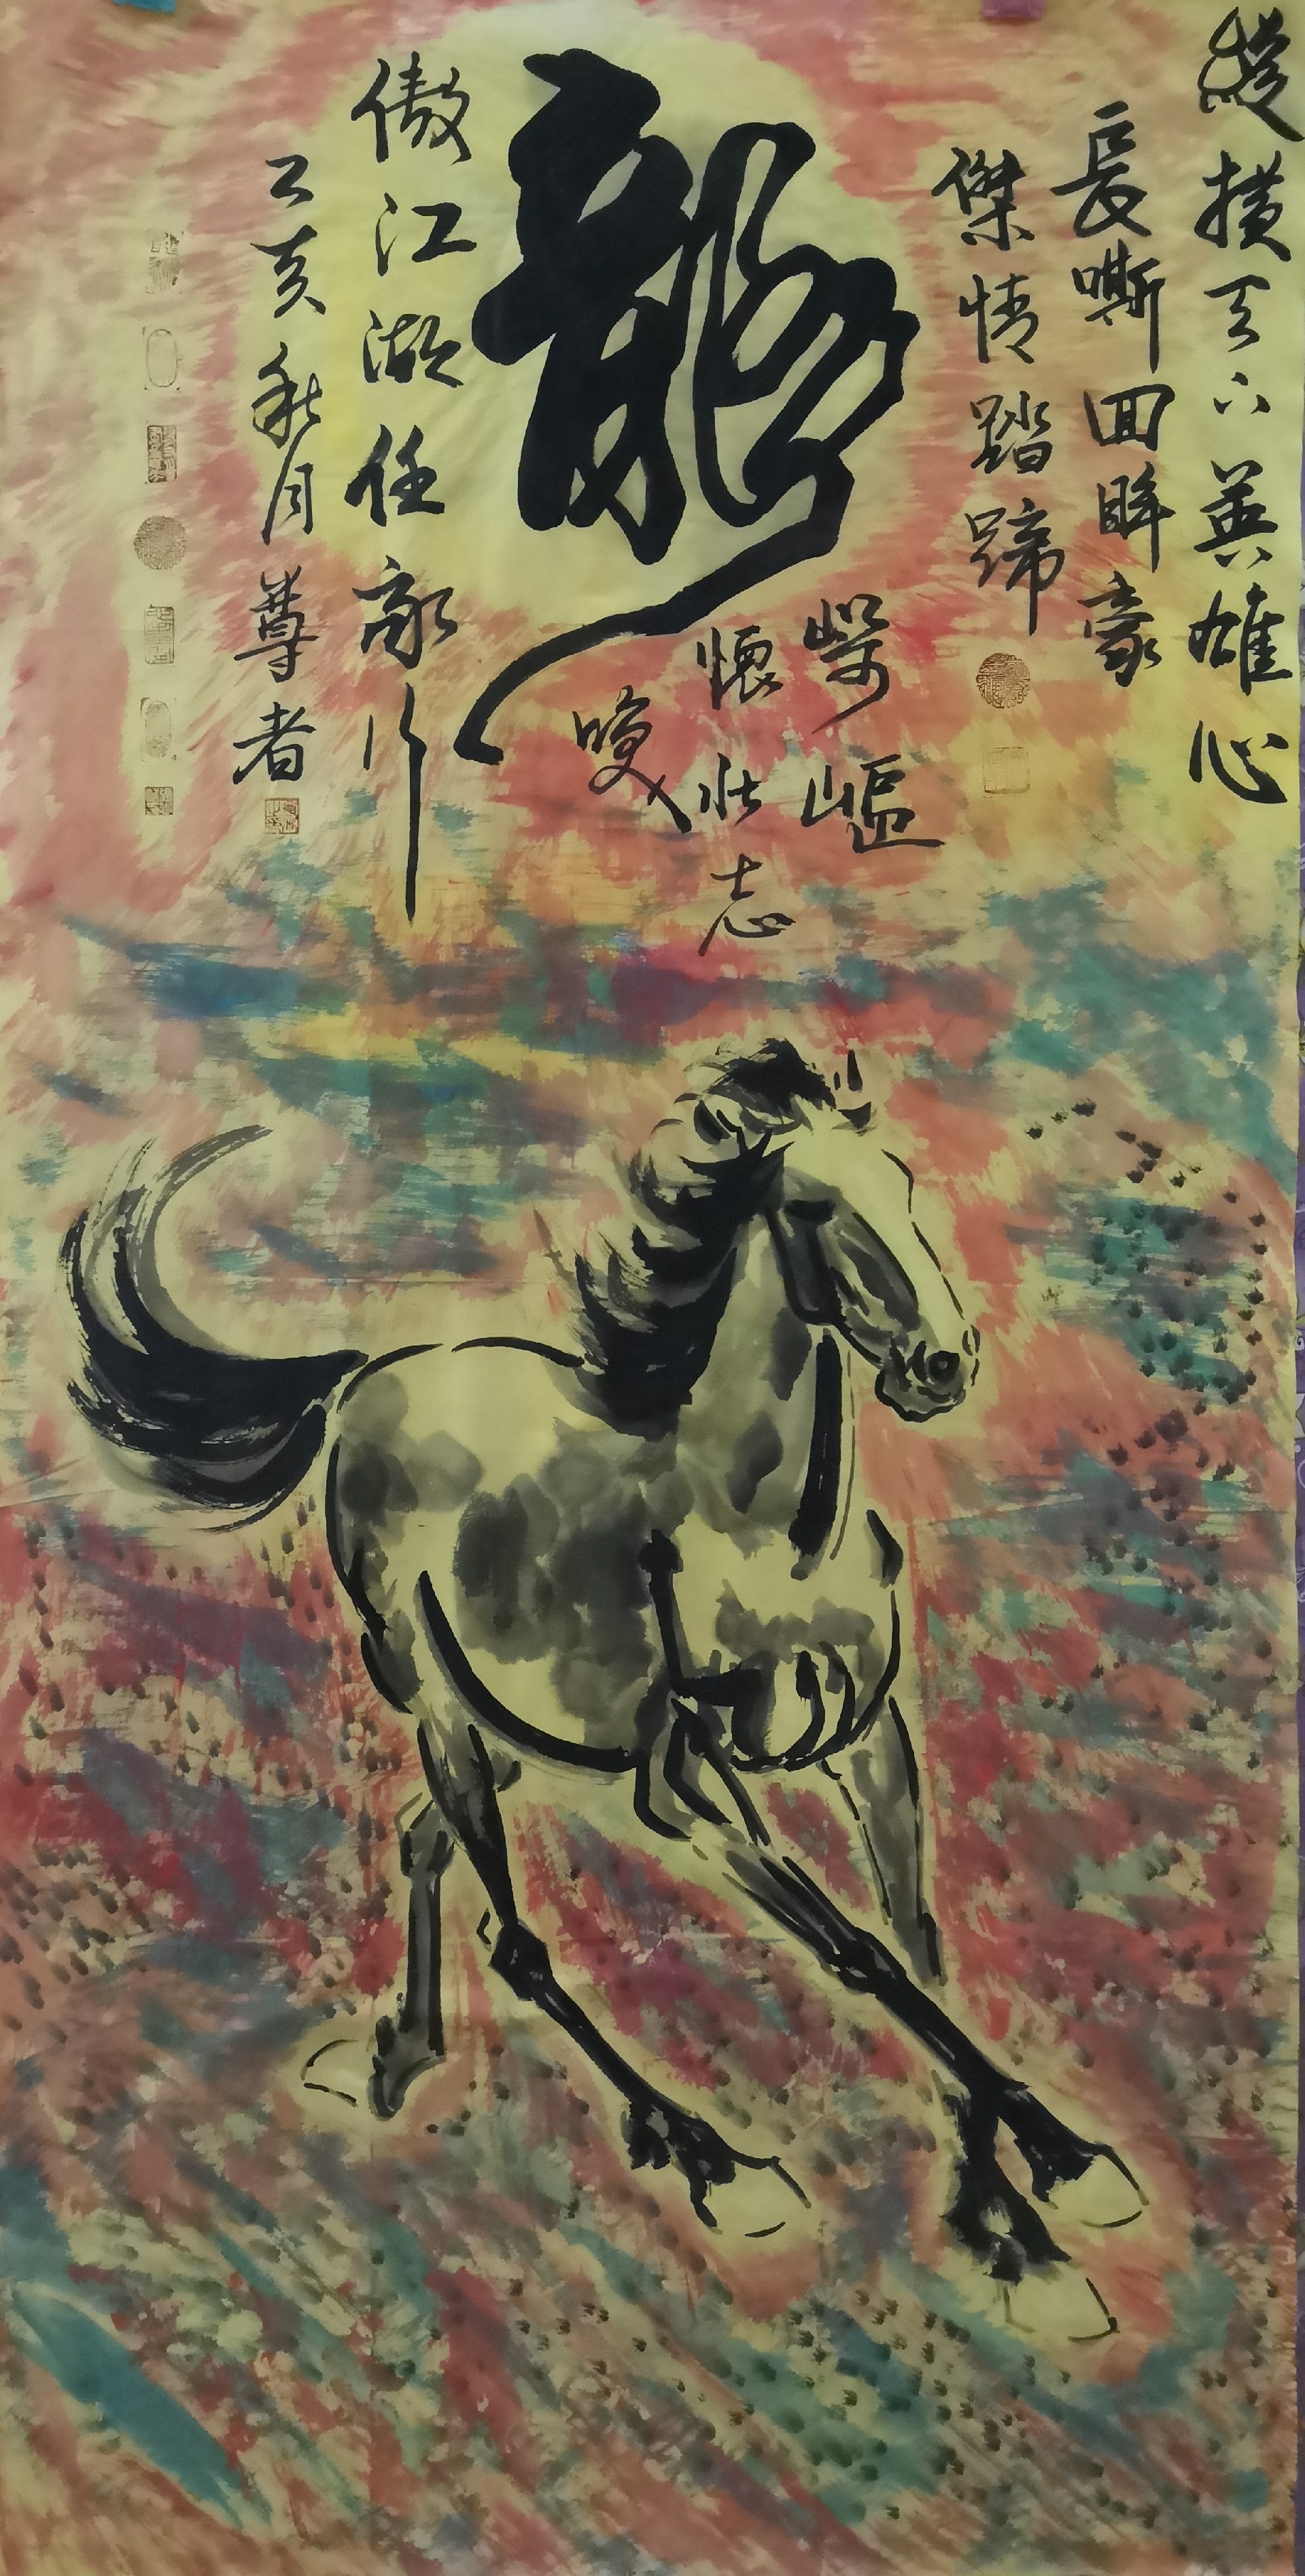 縱橫天下英雄心
長嘶回眸豪
傑情踏蹄
崎嶇
懷壯志
龍
嘆
傲江湖任我行
乙亥秋月尊者